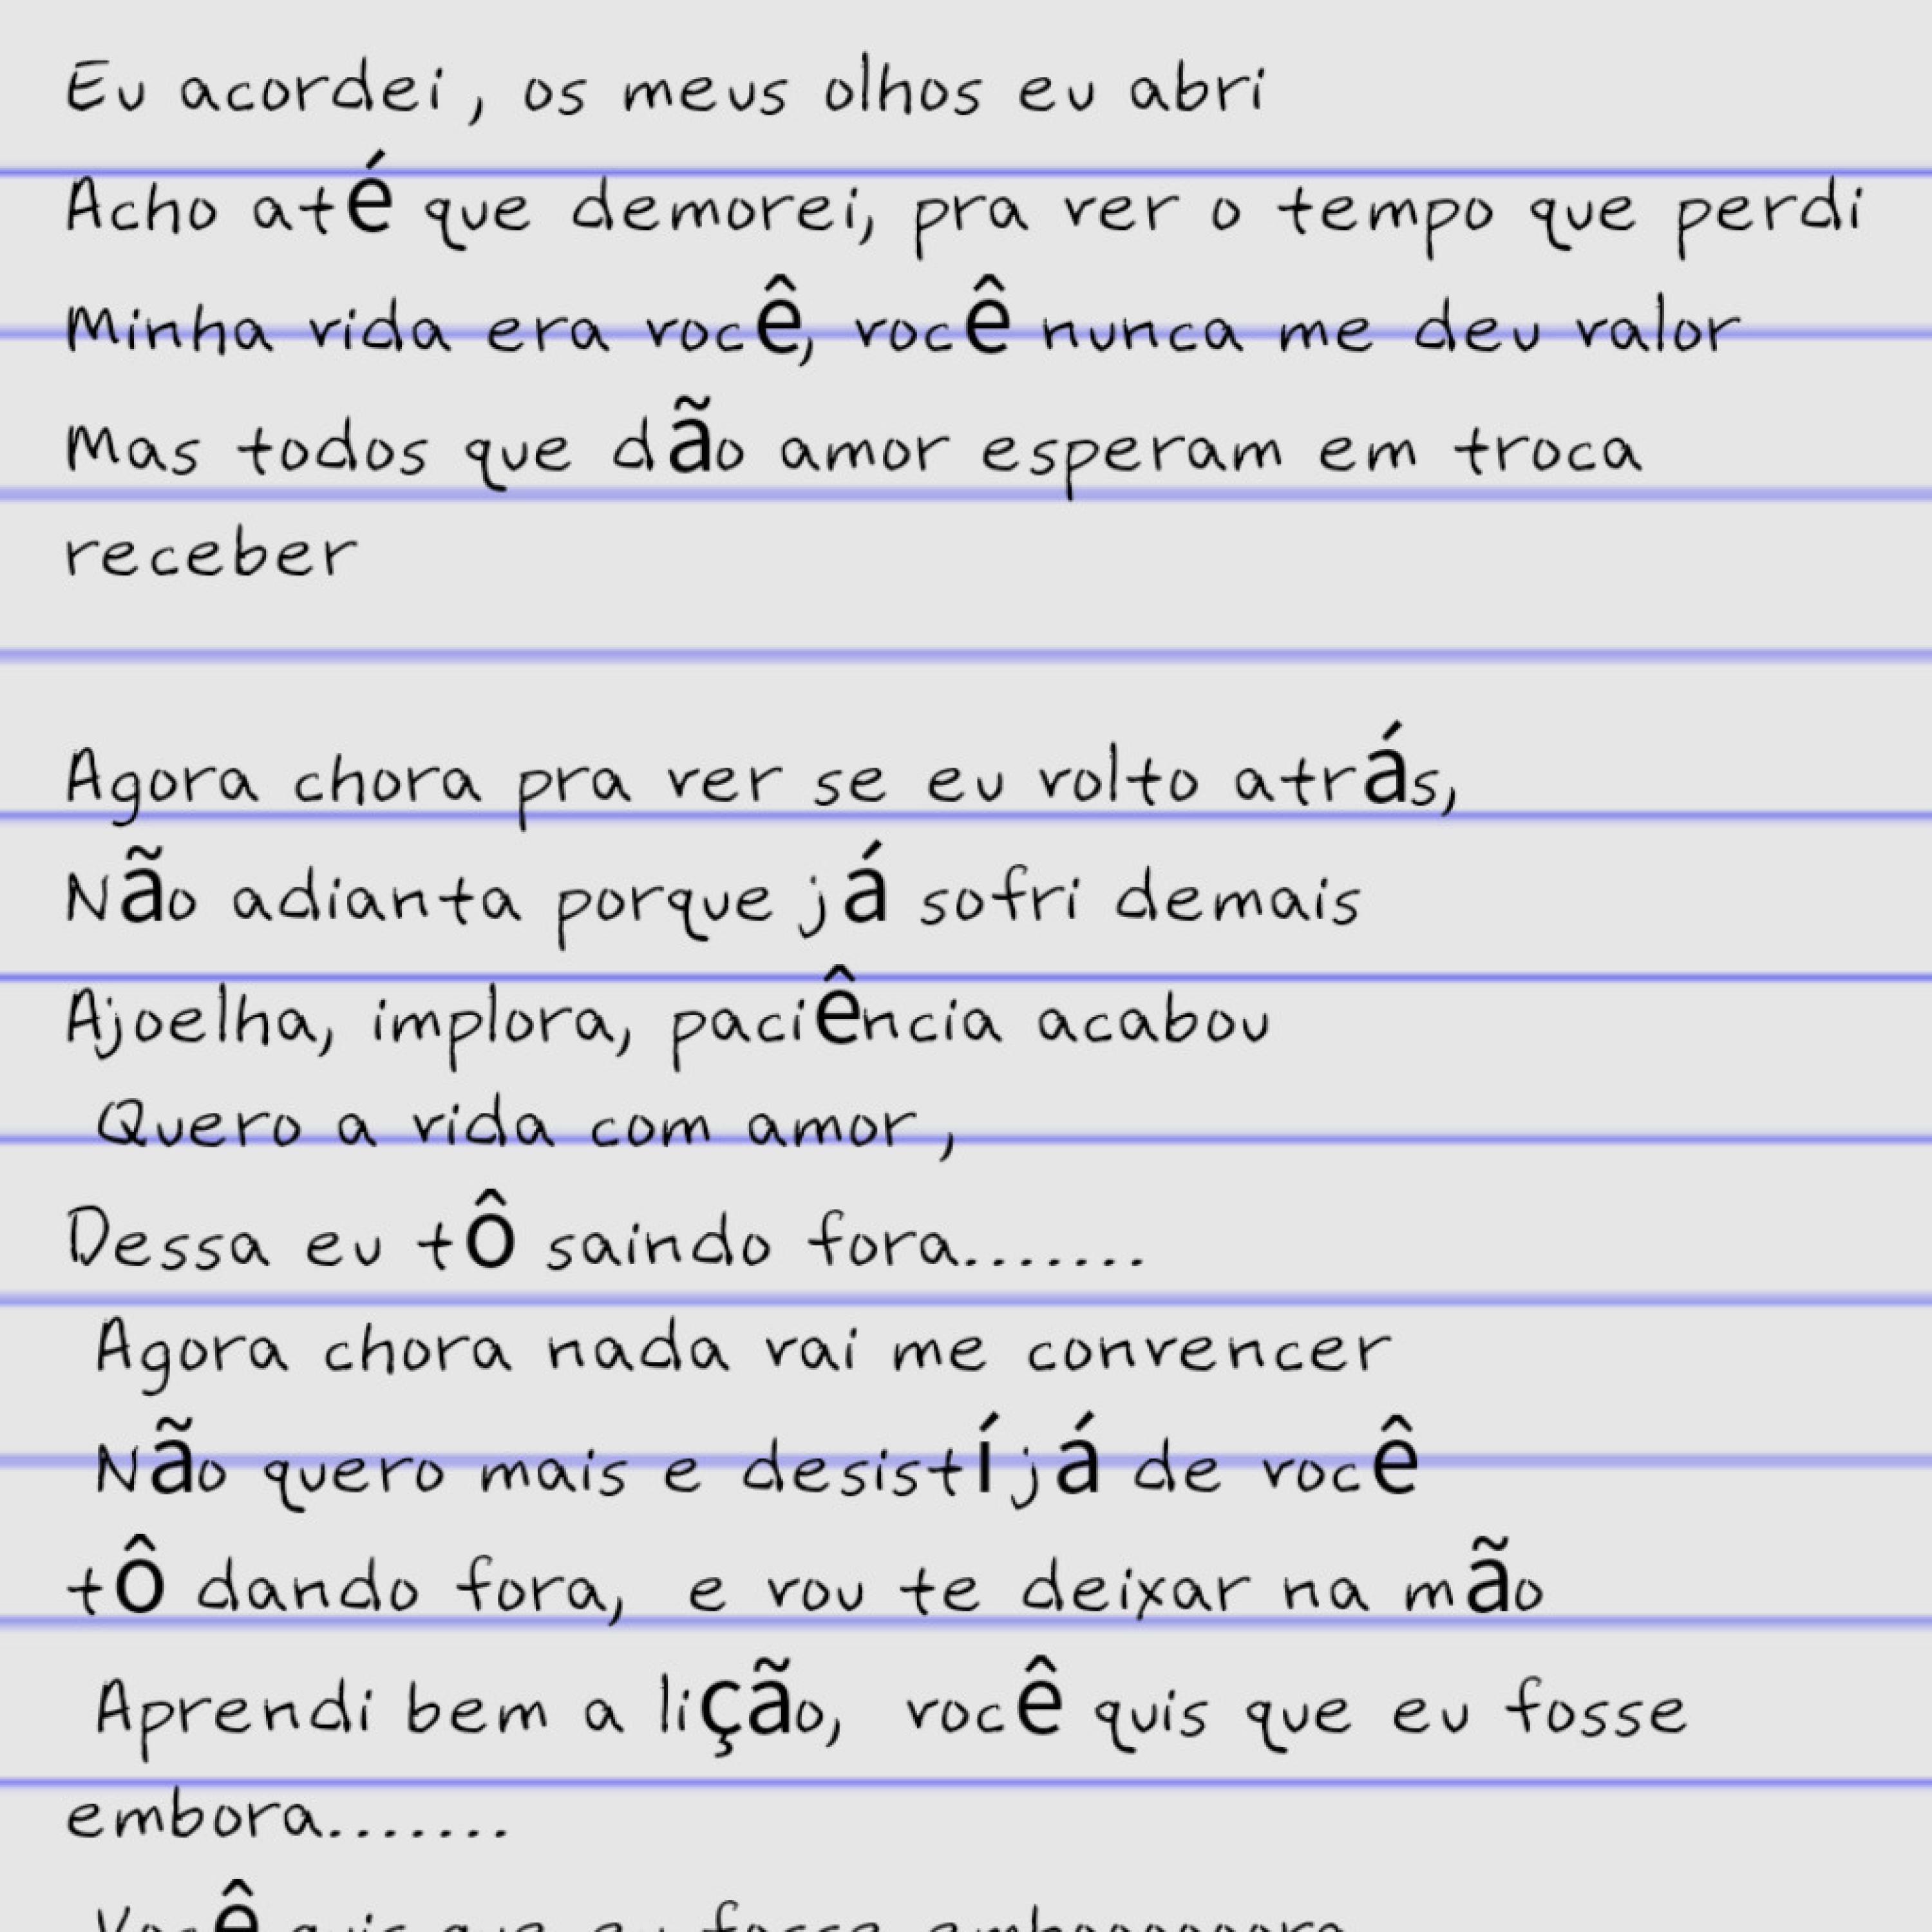 Eu acordei , os meus olhos eu abri
Acho até que demorei, pra ver o tempo que perdi
Minha vida era você, você nunca me deu valor
Mas todos que dão amor esperam em troca
receber
Agora chora pra ver se eu volto atrás,
Não adianta porque já sofri demais
Ajoelha, implora, paciência acabou
Quero a vida com amor ,
Dessa eu tô saindo fora.......
Agora chora nada vai me convencer
Não quero mais e desistí já de você
tô dando fora, e vou te deixar na mão
Aprendi bem a lição, você quis que eu fosse
embora.......
Você quis que eu fosse